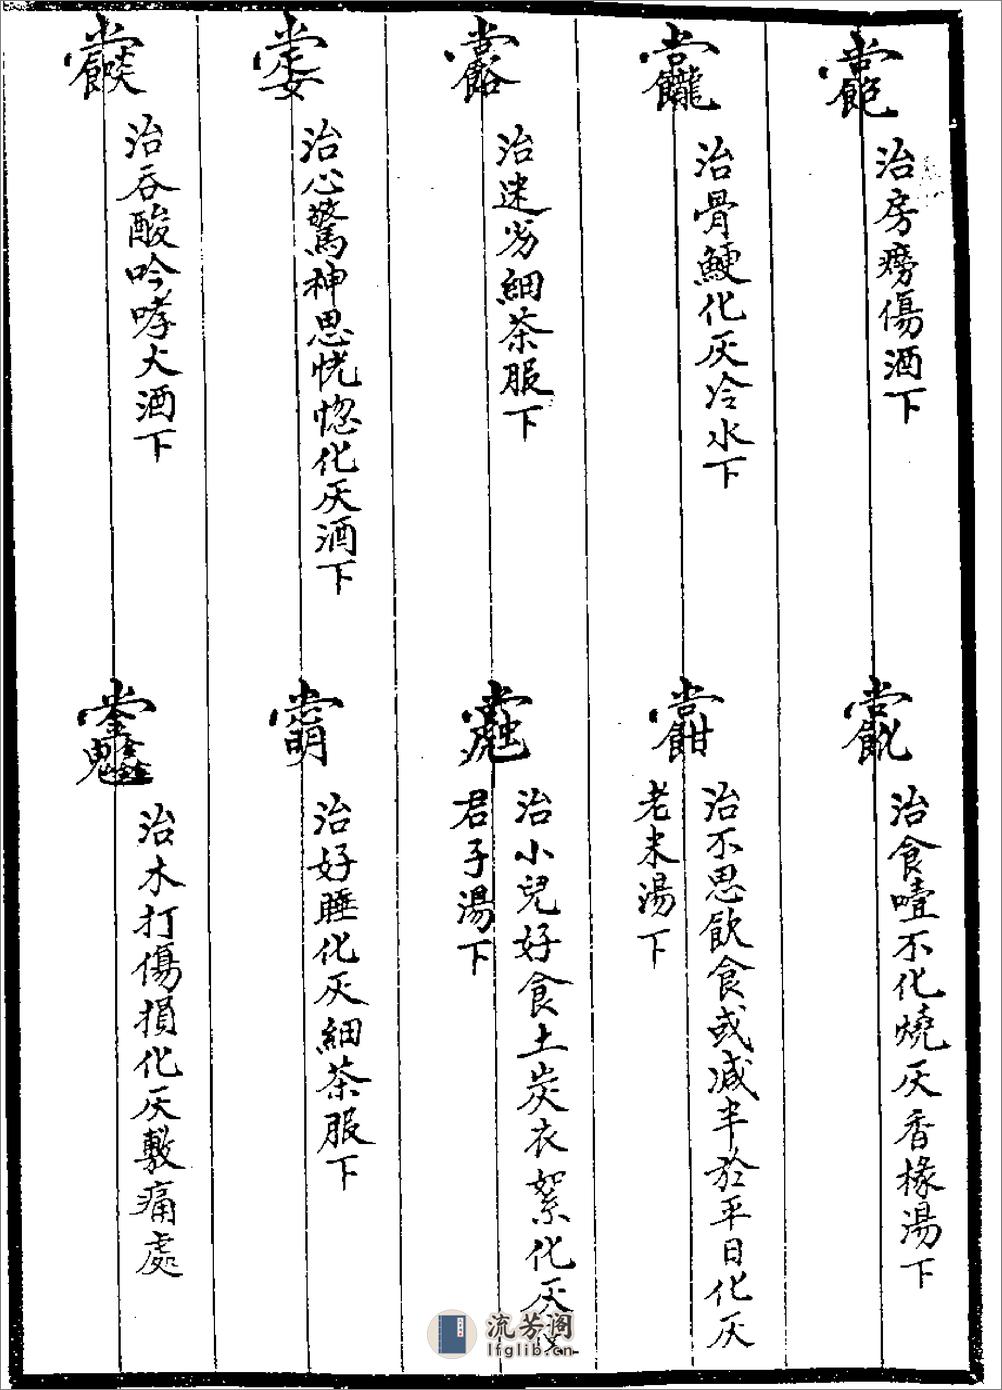 治房癆傷酒下
治食噎不化燒灰香椽湯下
治骨鯁化灰冷水下
治不思飲食或減半於平日化灰
老米湯下
治迷劣細茶服下
治小兒好食土炭衣絮化灰
君子湯下
治心驚神思恍惚化灰酒下
治好睡化灰細茶服下
治吞酸吟哮大酒下
治木打傷損化灰敷痛處
流芳阁
lfglib.cn